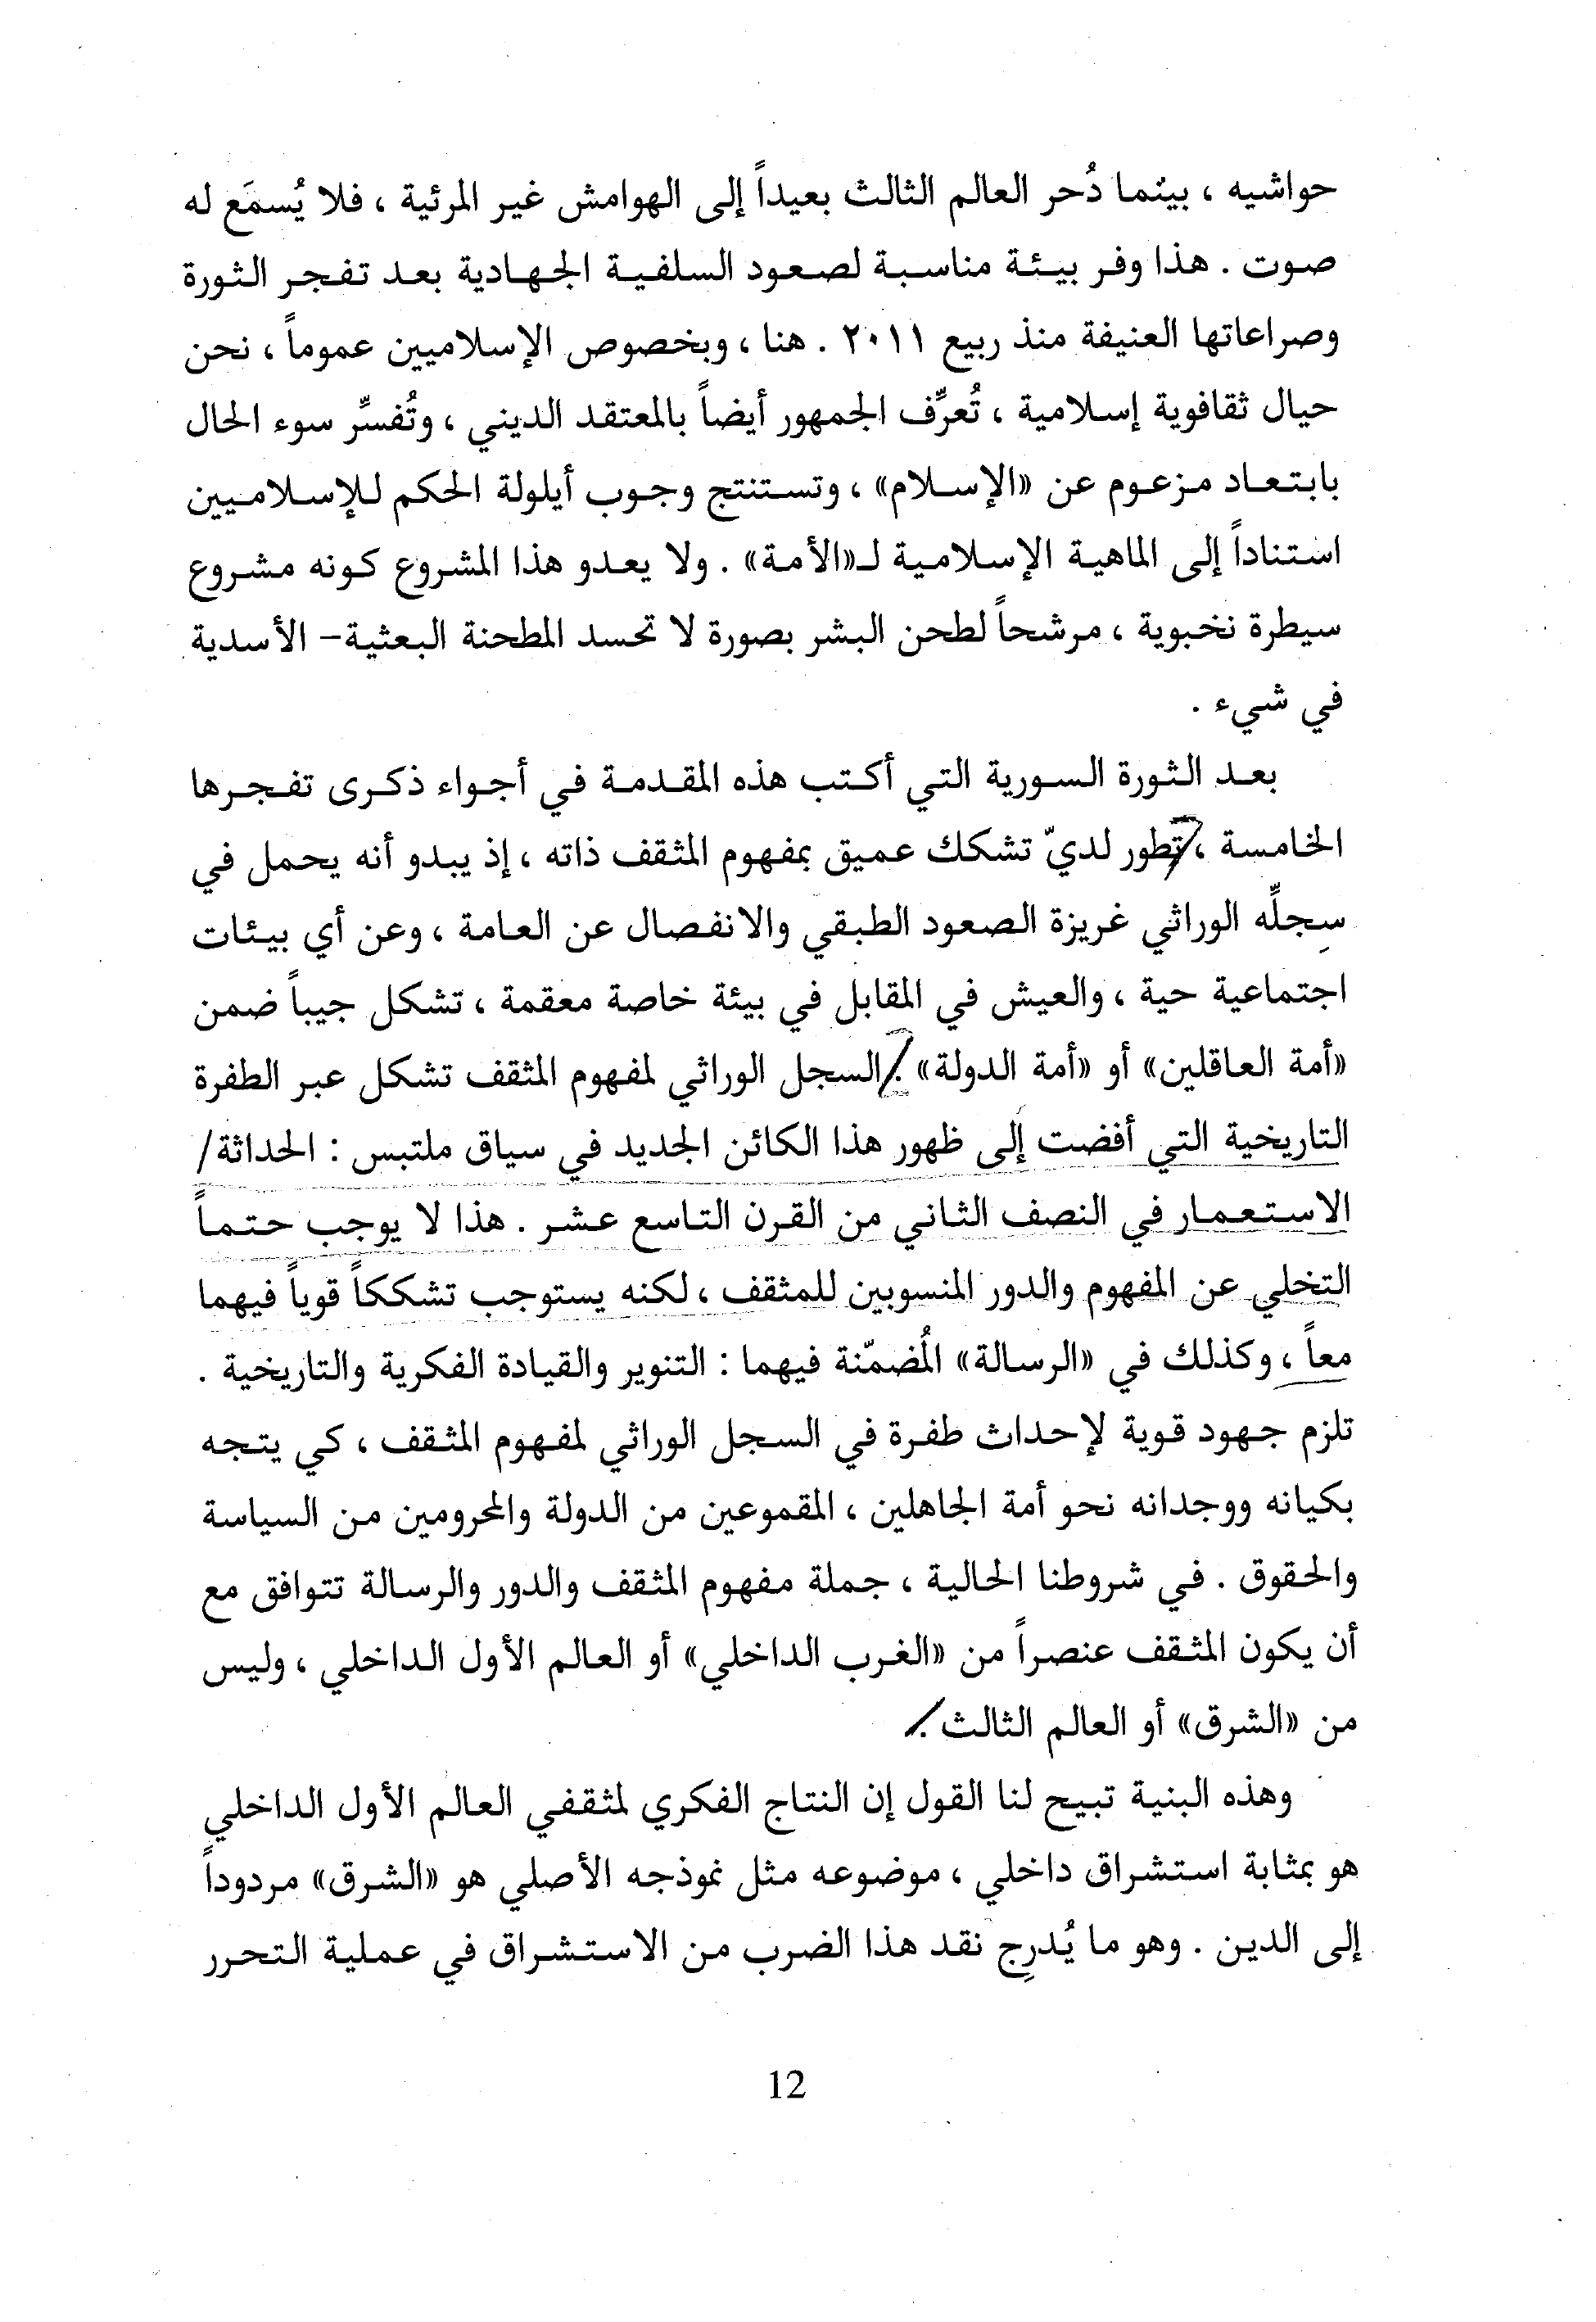 حواشيه ، بينما دُحر العالم الثالث بعيداً إلى الهوامش غير المرئية ، فلا يُسمَع له
صوت . هذا وفر بيئة مناسبة لصعود السلفية الجهادية بعد تفجر الثورة
وصراعاتها العنيفة منذ ربيع ٢٠١١ . هنا ، وبخصوص الإسلاميين عموماً ، نحن
حيال ثقافوية إسلامية ، تُعرِّف الجمهور أيضاً بالمعتقد الديني ، وتُفسِّر سوء الحال
بابتعاد مزعوم عن «الإسلام» ، وتستنتج وجوب أيلولة الحكم للإسلاميين
استناداً إلى الماهية الإسلامية لـ«الأمة» . ولا يعدو هذا المشروع كونه مشروع
سيطرة نخبوية ، مرشحاً لطحن البشر بصورة لا تحسد المطحنة البعثية- الأسدية
في شيء .
بعد الثورة السورية التي أكتب هذه المقدمة في أجواء ذكرى تفجرها
الخامسة ، تطور لديّ تشكك عميق بمفهوم المثقف ذاته ، إذ يبدو أنه يحمل في
سجلِّه الوراثي غريزة الصعود الطبقي والانفصال عن العامة ، وعن أي بيئات
اجتماعية حية ، والعيش في المقابل في بيئة خاصة معقمة ، تشكل جيباً ضمن
«أمة العاقلين» أو «أمة الدولة» . السجل الوراثي لمفهوم المثقف تشكل عبر الطفرة
التاريخية التي أفضت إلى ظهور هذا الكائن الجديد في سياق ملتبس : الحداثة/
الاستعمار في النصف الثاني من القرن التاسع عشر . هذا لا يوجب حتماً
التخلي عن المفهوم والدور المنسوبين للمثقف ، لكنه يستوجب تشككاً قوياً فيهما
معاً ، وكذلك في «الرسالة» المُضمّنة فيهما : التنوير والقيادة الفكرية والتاريخية .
تلزم جهود قوية لإحداث طفرة في السجل الوراثي لمفهوم المثقف ، كي يتجه
بكيانه ووجدانه نحو أمة الجاهلين ، المقموعين من الدولة والمحرومين من السياسة
والحقوق . في شروطنا الحالية ، جملة مفهوم المثقف والدور والرسالة تتوافق مع
أن يكون المثقف عنصراً من «الغرب الداخلي» أو العالم الأول الداخلي ، وليس
من «الشرق» أو العالم الثالث .
وهذه البنية تبيح لنا القول إن النتاج الفكري لمثقفي العالم الأول الداخلي
هو بمثابة استشراق داخلي ، موضوعه مثل نموذجه الأصلي هو «الشرق» مردوداً
إلى الدين . وهو ما يُدرِج نقد هذا الضرب من الاستشراق في عملية التحرر
12